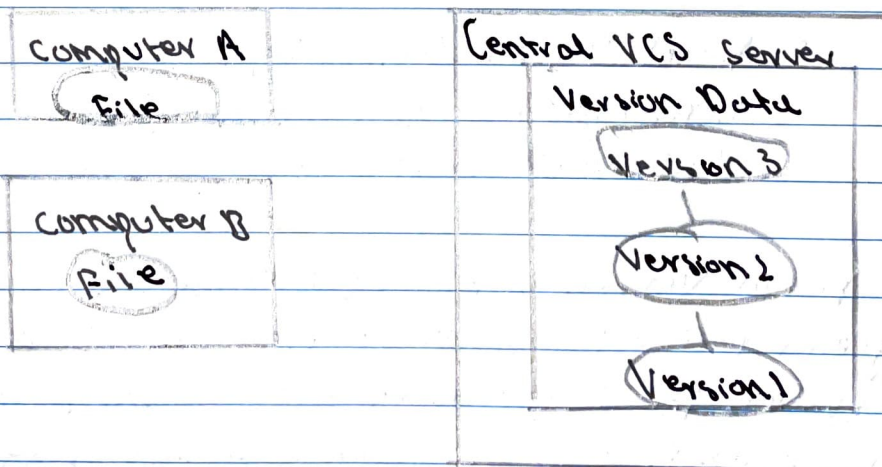 Computer A
File
Computer B
File
Central VCS Server
Version Data
Version 3
Version 2
Version 1